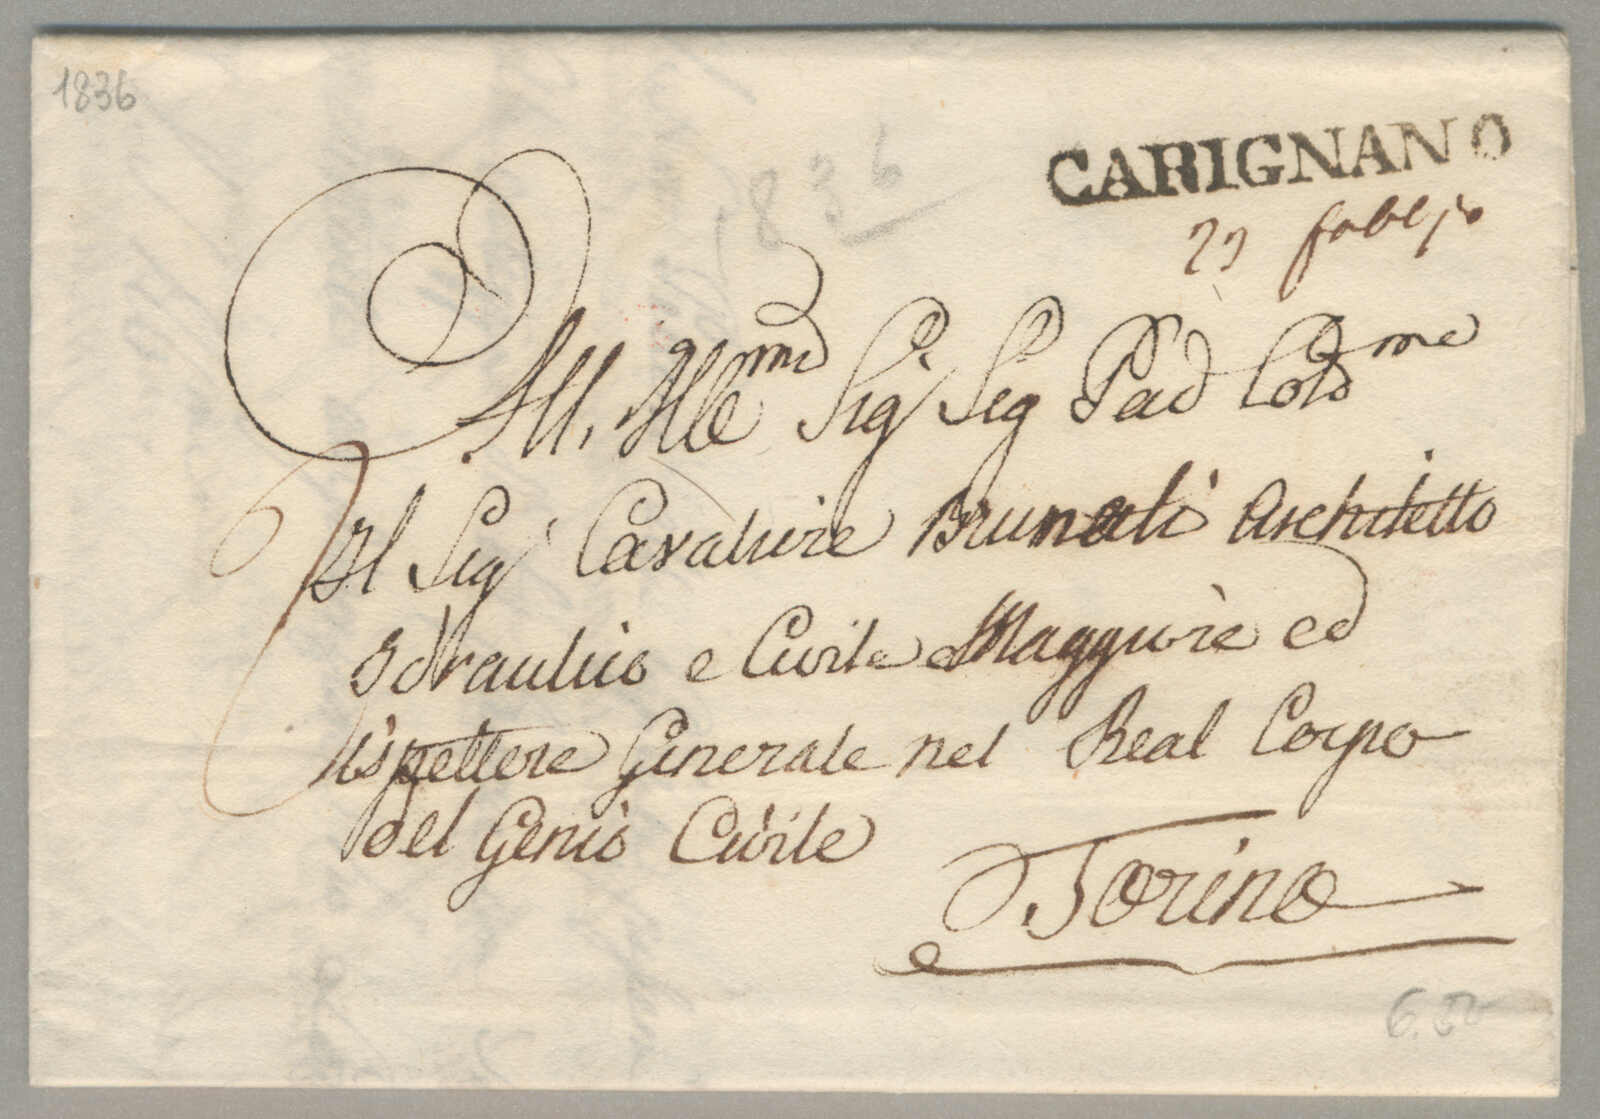 1836
CARIGNANO
1836
All. Ill.mo Sig Sig Pad Col.mo
Il Sig Cavaliere Brunati Architetto
Idraulico e Civile Maggiore ed
ispettore Generale nel Real Corpo
del Genio Civile
Torino
6.50